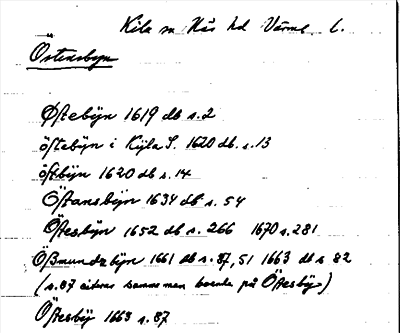 Kila sn Näs hd Värml l.
Östensbyn
Östebÿn 1619 db s.2
östebÿn i Kijla S. 1620 db. s.13
östbÿn 1620 db s.14
Östansbÿn 1634 db s. 54
Östesbÿn 1652 db s. 266 1670 s.281
Ößmundzbÿn 1661 db s. 87, 51 1663 db s 82
(s.87 samme man på Östesbÿ)
Östesbÿ 1663 s.87